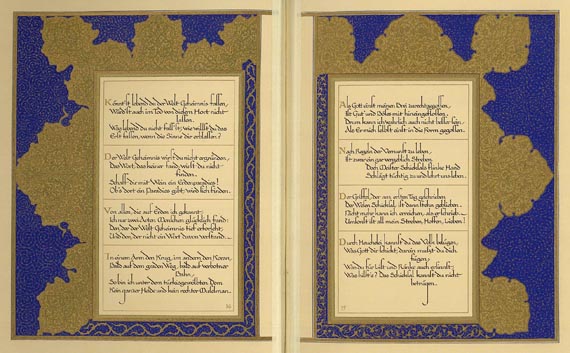 Könnt'st lebend du der Welt Geheimnis fassen,
Würd'st auch im Tod von diesem Hort nicht
lassen.
lebend du nicht fass'st, wie willst du das
Erst fassen, wenn die Sinne dir erblassen?
Der Welt Geheimnis wirst du nicht ergründen,
Das Wort, das keiner fand, wirst du nicht
finden.
Schaff dir mit Wein ein Erdenparadies!
Ob's dort ein Paradies gibt, wird sich finden.
Von allen, die auf Erden ich gekannt,
Ich nur zwei Arten Menschen glücklich fand:
Den, der der Welt Geheimnis tief erforscht,
Und den, der nicht ein Wort davon verstand.
In einem Arm den Krug, im andern den Koran,
Bald auf dem graden Weg, bald auf verbotner
Bahn,
So bin ich unter dem türkisgewölbten Dom
Kein ganzer Heide und kein rechter Muselman.
Als Gott einst meinen Dreck zurechtgegossen,
Ist Gut und Böses mit hineingeflossen.
Drum kann ich wahrlich auch nicht besser sein,
Als Er mich selbst einst in die Form gegossen.
Nach Regeln der Vernunft zu leben,
Ist zwar ein gar vergeblich Streben
Doch Meister Schicksals flinke Hand
Schlägt tüchtig zu und lehrt uns leben.
Der Griffel, der am ersten Tag geschrieben
Des Wesens Schicksal, ist dann stehn geblieben.
Nicht mehr kann ich erreichen, als er schrieb.
Umsonst ist all mein Streben, Hoffen, Lieben!
Durch Heuchelei kannst du das Volk belügen,
Was Gott dir schickt, darein mußt du dich
fügen;
Würden für List und Ränke auch erfannst,
Was hilft's? Das Schicksal kannst du nicht
betrügen.